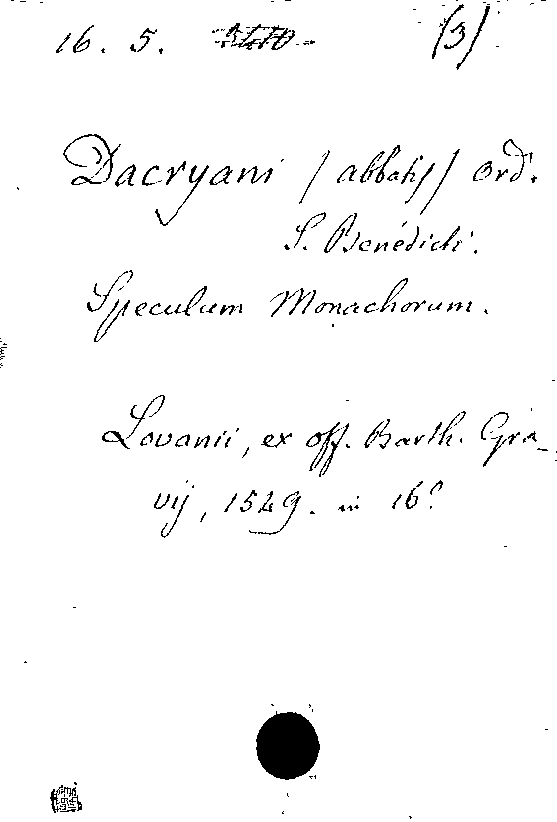 16. 5. (3)
Dacryani /abbatis/ Ord.
S. Benedicti.
Speculum Monachorum.
Lovanii, ex off. Barth. Gra-
vij, 1549. in 16º